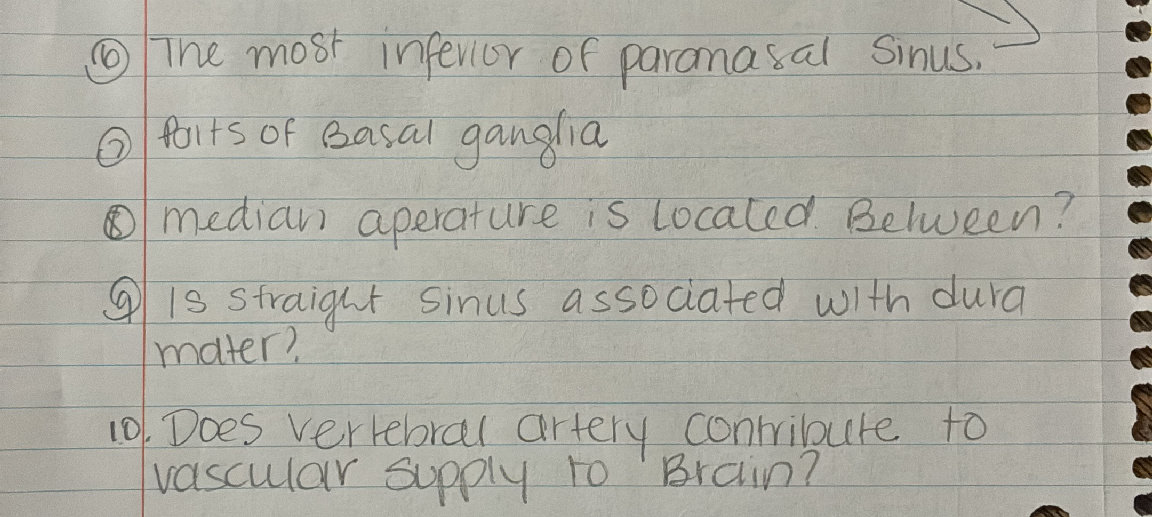 ⑥ The most inferior of paramasal Sinus.
⑦ Parts of Basal ganglia
⑧ median aperature is located Between?
⑨ Is straight sinus associated with dura
mater?
10. Does vertebral artery contribute to
vascular supply to Brain?